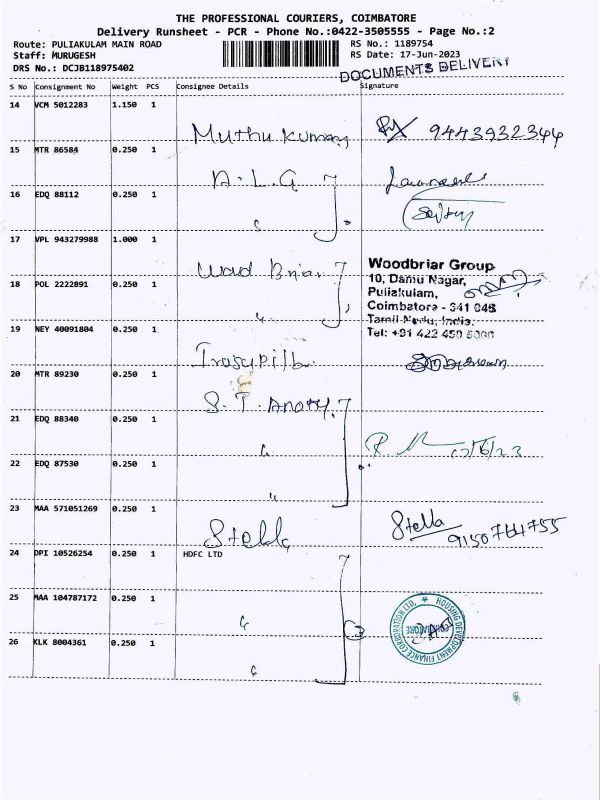 THE PROFESSIONAL COURIERS, COIMBATORE
Delivery Runsheet - PCR - Phone No.:0422-3505555 - Page No.:2
Route: PULIAKULAM MAIN ROAD
RS No.: 1189754
Staff: MURUGESH
RS Date: 17-Jun-2023
DRS No.: DCJB118975402
DOCUMENTS DELIVERY
S No Consignment No Weight PCS Consignee Details Signature
14 VCM 5012283 1.150 1
Muthu Kumar 9443932344
15 MTR 86584 0.250 1
A.L.G
16 EDQ 88112 0.250 1
17 VPL 943279988 1.000 1
Woodbriar Group
10, Damu Nagar,
18 POL 2222891 0.250 1
Puliakulam,
Coimbatore - 641 045
Tamil Nadu, India.
Tel: +91 422 450 5000
19 NEY 40091804 0.250 1
20 MTR 89230 0.250 1
S.T. Anony
21 EDQ 88340 0.250 1
17/6/23
22 EDQ 87530 0.250 1
23 MAA 571051269 0.250 1
Stella Stella
9150764755
24 DPI 10526254 0.250 1 HDFC LTD
25 MAA 104787172 0.250 1
HOUSING DEVELOPMENT FINANCE CORPORATION LTD.
COIMBATORE
26 KLK 8004361 0.250 1